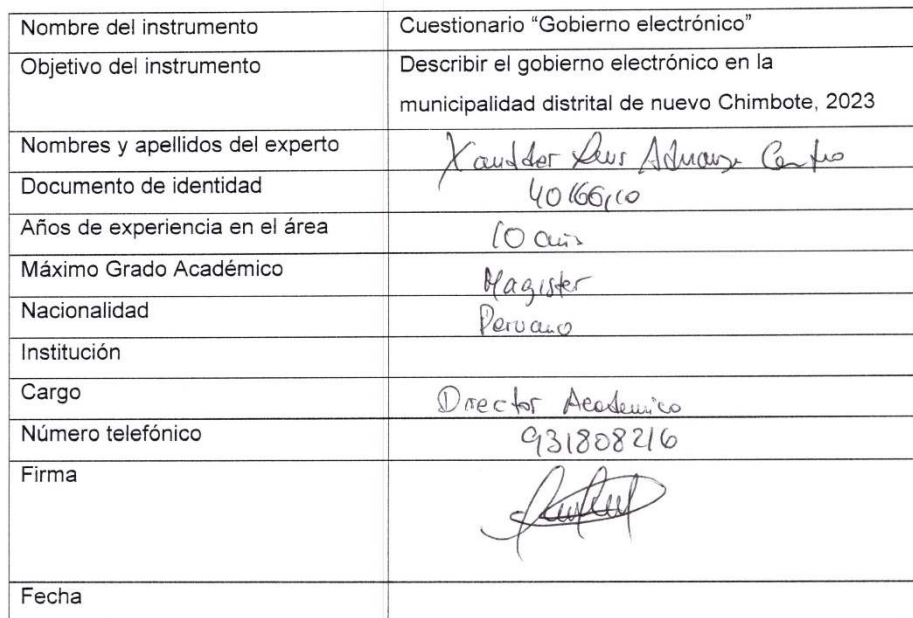 Nombre del instrumento Cuestionario “Gobierno electrónico”
Objetivo del instrumento Describir el gobierno electrónico en la
municipalidad distrital de nuevo Chimbote, 2023
Nombres y apellidos del experto Xandder
Documento de identidad
Años de experiencia en el área 10 años
Máximo Grado Académico Magister
Nacionalidad Peruano
Institución
Cargo Director Academico
Número telefónico 931808216
Firma
Fecha